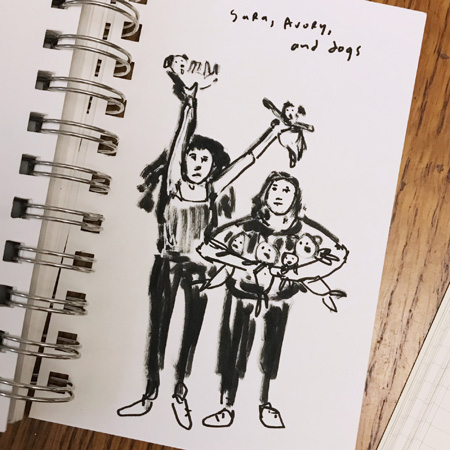 Sara, Avory,
and dogs